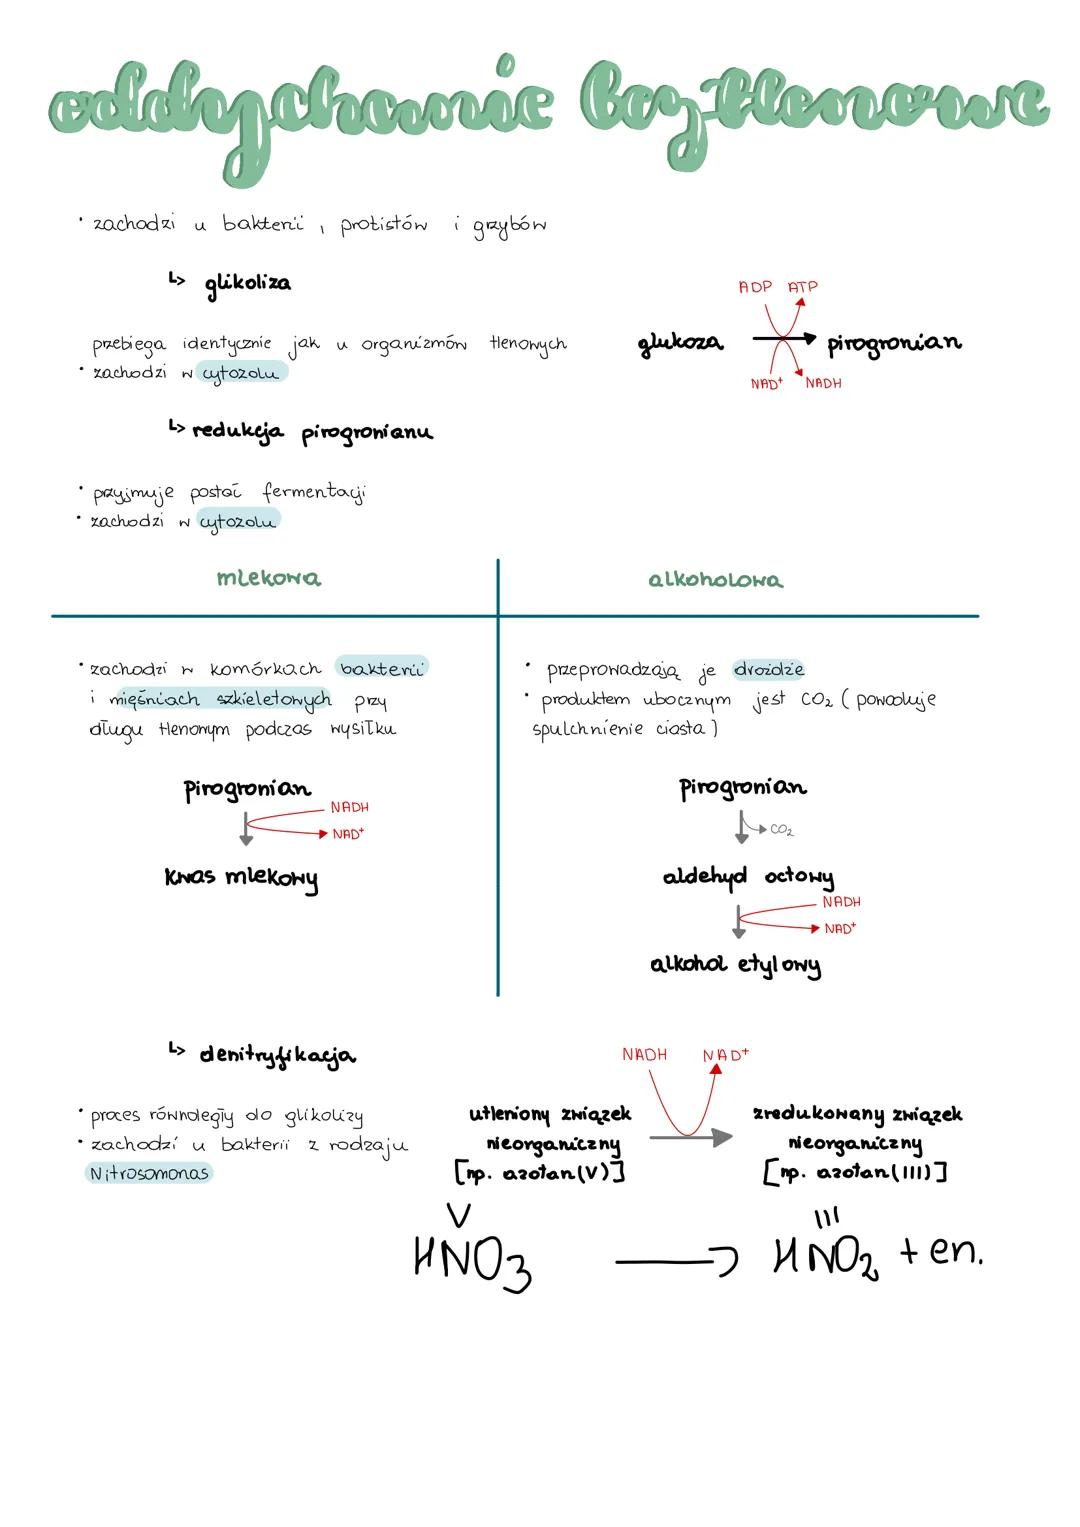 oddychanie beztlenowe
• zachodzi u bakterii, protistów i grzybów
↳ glikoliza
ADP ATP
przebiega identycznie jak u organizmów tlenowych
glukoza → pirogronian
• zachodzi w cytozolu
NAD⁺ NADH
↳ redukcja pirogronianu
• przyjmuje postać fermentacji
• zachodzi w cytozolu
mlekowa
alkoholowa
• zachodzi w komórkach bakterii
i mięśniach szkieletowych przy
długu tlenowym podczas wysiłku
pirogronian
NADH
NAD⁺
kwas mlekowy
• przeprowadzają je drożdże
• produktem ubocznym jest CO₂ (powoduje
spulchnienie ciasta)
pirogronian
CO₂
aldehyd octowy
NADH
NAD⁺
alkohol etylowy
↳ denitryfikacja
• proces równoległy do glikolizy
• zachodzi u bakterii z rodzaju
Nitrosomonas
NADH NAD⁺
utleniony związek
nieorganiczny
[np. azotan(V)]
zredukowany związek
nieorganiczny
[np. azotan(III)]
V III
HNO₃ → HNO₂ + en.